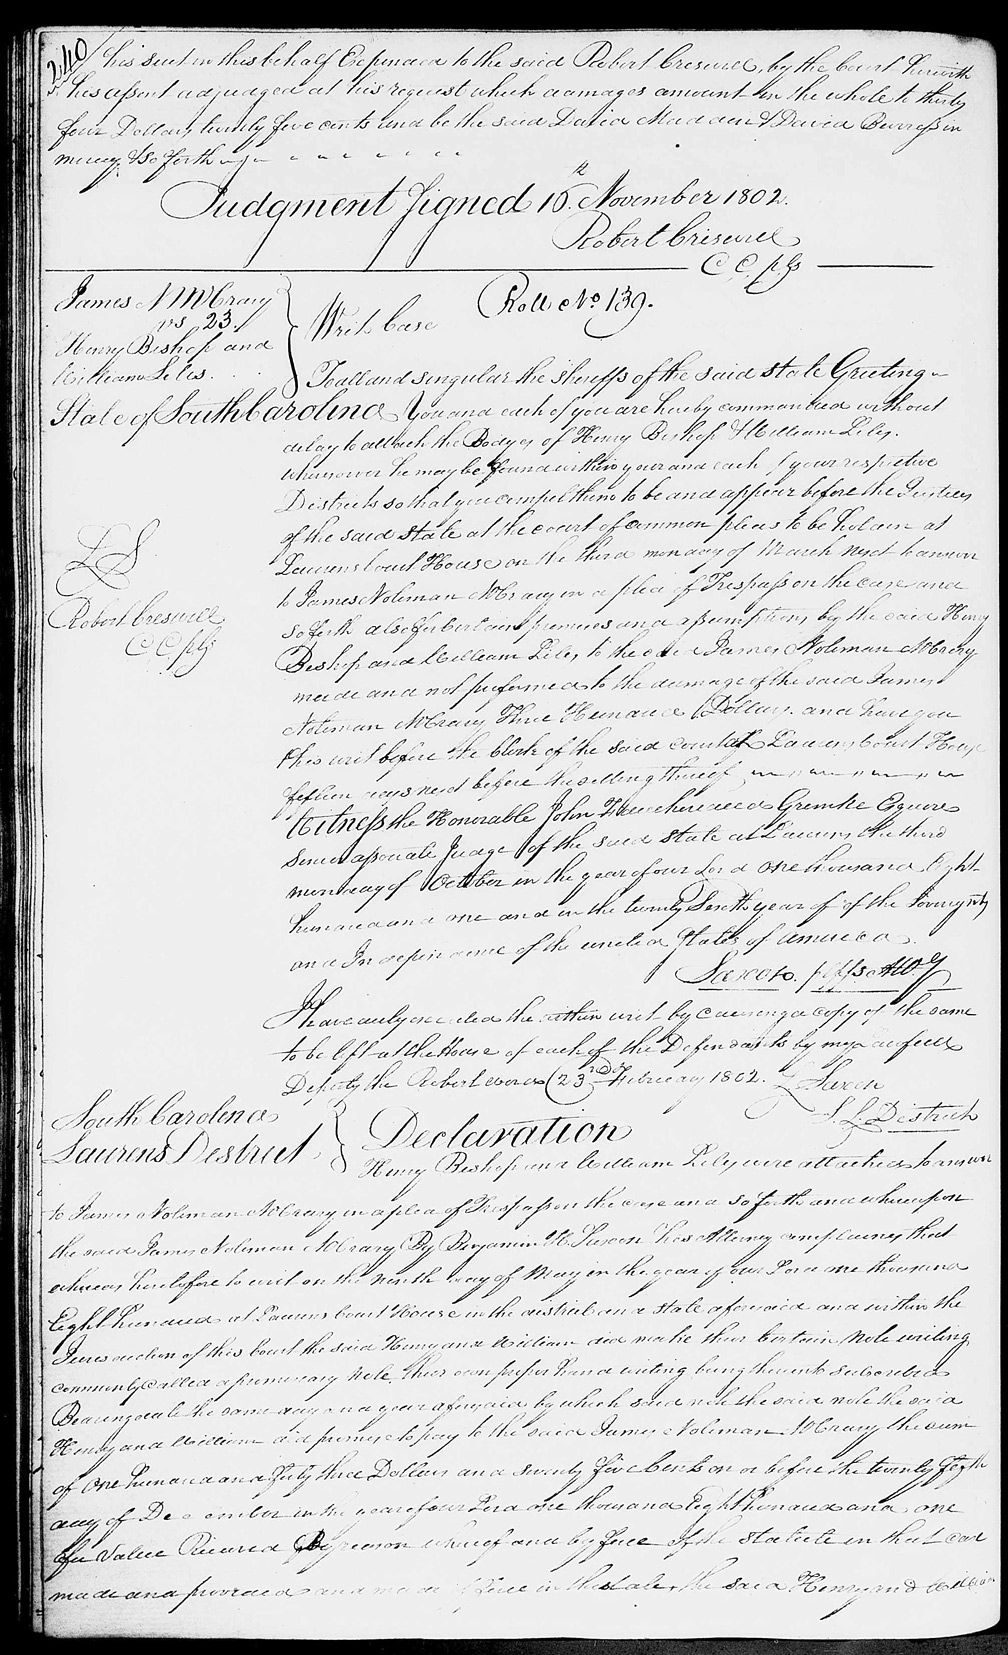 240
his suit in this behalf Expended to the said Robert Creswell, by the Court herewith
his assent adjudged at his request which damages amount in the whole to thirty
four Dollars twenty five cents and be the said David Madden & David Burress in
mercy &so forth
Judgment Signed 16.th November 1802.
Robert Creswell
C C. plfs
Roll No. 139.
James N McCrary
vs 23.
Henry Bishop and
William Liles.
Writ Case
To all and singular the sheriffs of the said state Greeting
State of South Carolina You and each of you are hereby commanded without
delay to attach the Bodyes of Henry Bishop & William Liles.
whereever he may be found within your and each of your respective
Districts so that you compel them to be and appear before the Justices
of the said State at the court of common pleas to be holden at
Laurens Court House on the third monday of March next to answer
to James Noleman McCrary in a plea of Trespass on the case and
so forth also for Certain promises and assumptions by the said Henry
Bishop and William Liles to the said James Noleman McCrary
made and not preformed to the damage of the said James
Noleman McCrary Three Hundred Dollars. and have you
this writ before the Clerk of the said court at Laurens Court House
fifteen days next before the sitting thereof
L S
Robert Creswell
C C plfs
Witness the Honorable John Grimke Equire
Senior associate Judge of the said State at Laurens the third
monday of October in the year of our Lord one thousand Eight
hundred and one and in the twenty Sixth year of of the Sovereignty
and Independence of the united States of America.
Saxon. plffs Atty
I have duly executed the within writ by causing a copy of the same
to be left at the House of each of the Defendants by my Lawfull
Deputy the Robert 23rd February 1802. L Saxon
S. L District
South Carolina
Laurens Destrict
Declaration
Henry Bishop and William Lily were attached to answer
to James Noleman McCrary in a plea of Trespass on the case and so forth and whereupon
the said James Noleman McCrary By Benjamin H. Saxon his Attorney complaines that
whereas heretofore to wit on the ninth day of May in the year of our Lord one thousand
Eight hundred at Laurens Court House in the district and state aforesaid and within the
Jurisdiction of this Court the said Henry and William did make their Certain Note writing
commonly Called a promissory Note, their own proper hand writing being thereunto subscribed
Bearing date the same day and year aforesaid by which said note the said note the said
Henry and William did promise to pay to the said James Noleman McCrary the sum
of One hundred and fifty three Dollars and seventy five Cents on or before the twenty fifth
day of December in the year of our Lord one thousand Eight hundred and one
for Value Received By reason whereof and by force of the Statute in that case
made and provided and made of force in this state, the said Henry and William